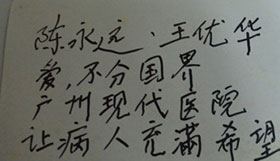 陈永远、王优华
爱,不分国界
广州现代医院
让病人充满希望